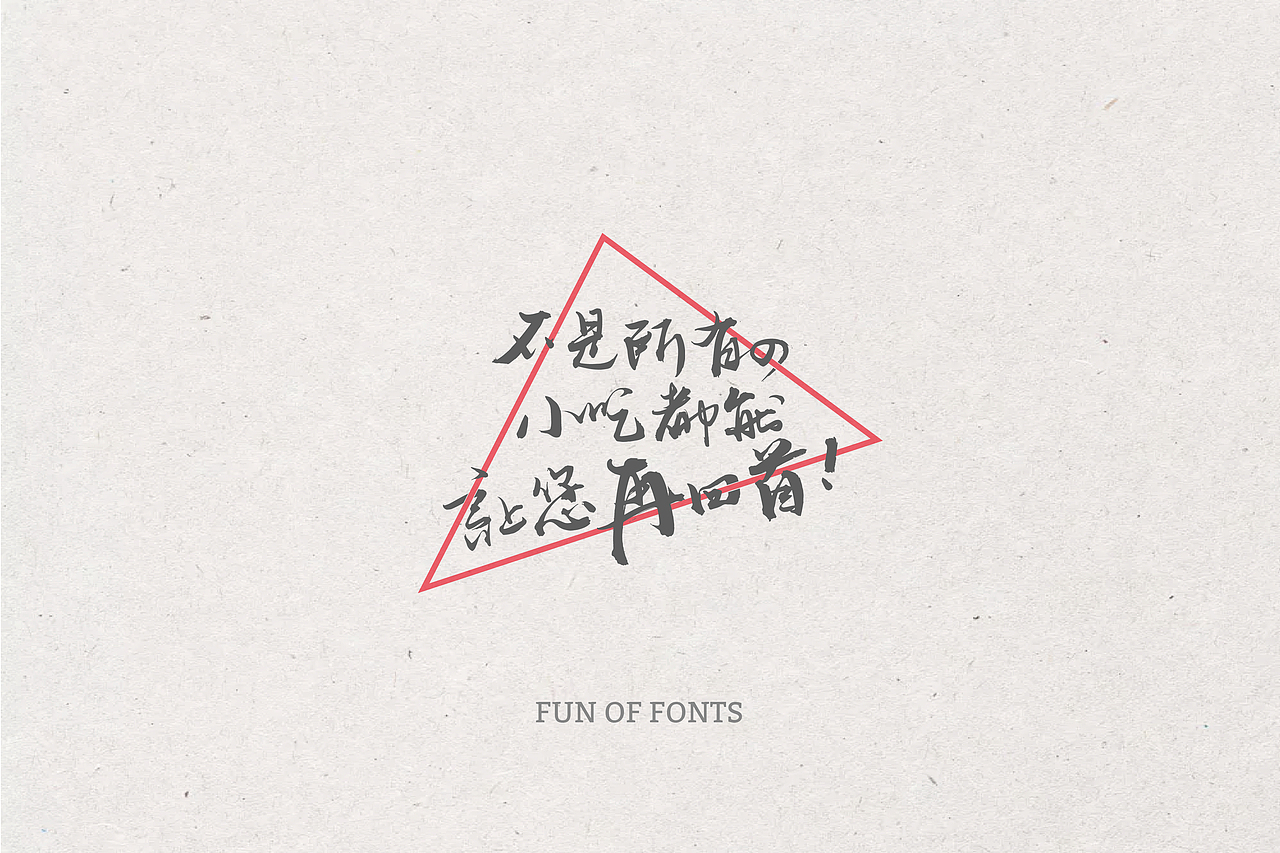 不是所有の
小吃都能
让您再回首!
FUN OF FONTS